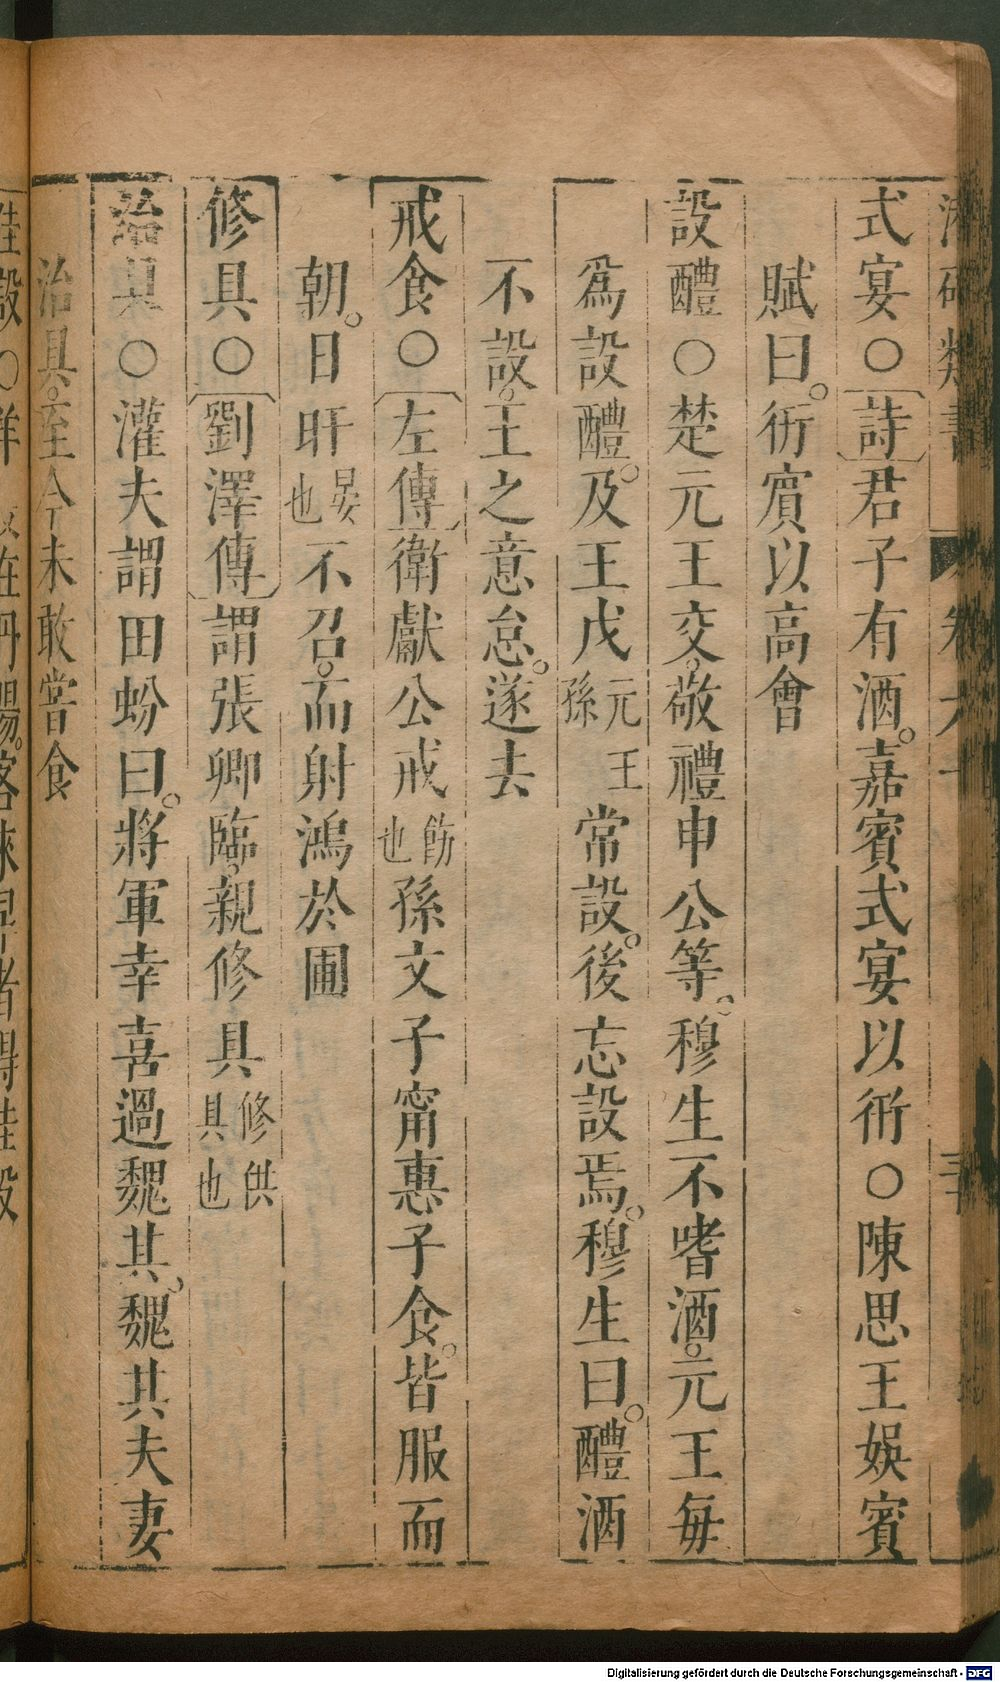 式宴〇詩君子有酒。嘉賓式宴以衎〇陳思王娛賓
賦曰。衎賓以高會
設醴〇楚元王交。敬禮申公等。穆生不嗜酒。元王每
爲設醴。及王戊元王孫常設。後忘設焉。穆生曰。醴酒
不設。王之意怠。遂去
戒食〇左傳衛獻公戒飭也孫文子甯惠子食。皆服而
朝。日旰晏也不召。而射鴻於圃
修具〇劉澤傳謂張卿臨。親修具修供具也
治具〇灌夫謂田蚡曰。將軍幸喜過魏其。魏其夫妻
治具。至今未敢嘗食
Digitalisierung gefördert durch die Deutsche Forschungsgemeinschaft - DFG